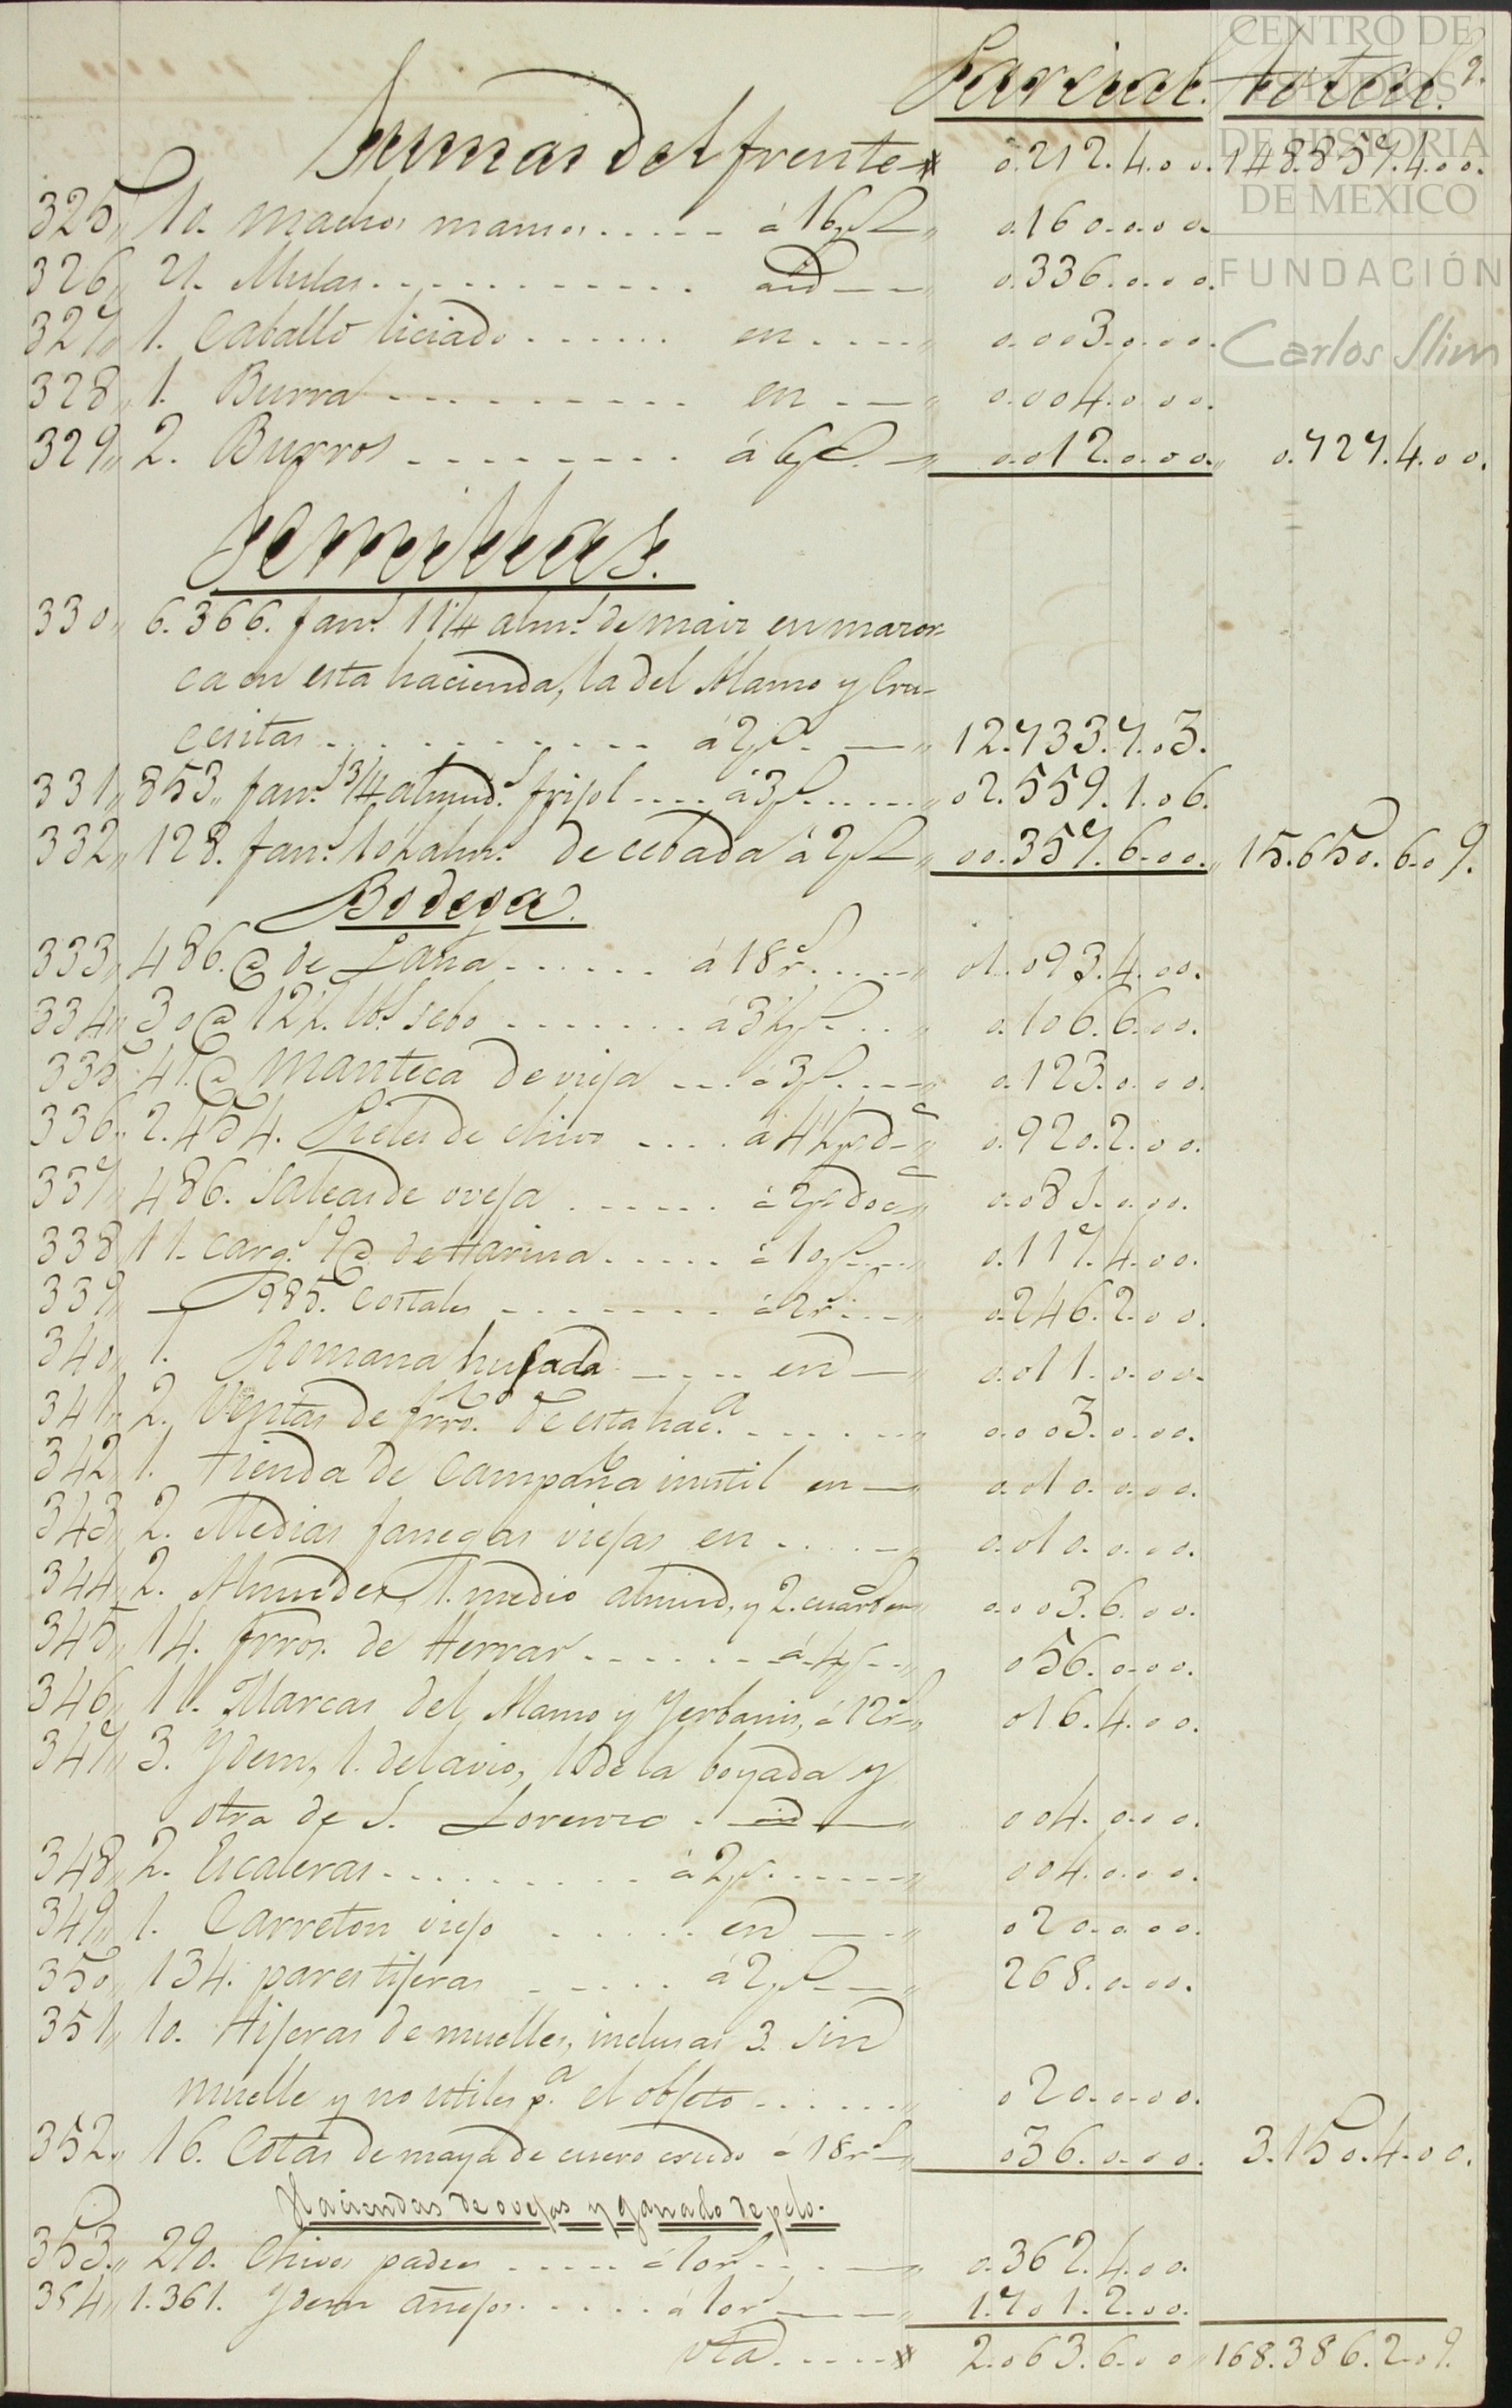 Parcial. total.
Sumas del frente 0.212.4.00. 148.857.4.00.
325,, 10. machos mansos..... á 16 ps ,, 0.160.0.00.
326,, 21. Mulas........... á id —,, 0.336.0.00.
327,, 1. Caballo liciado...... en ....,, 0.003.0.00.
328,, 1. Burra......... en .—,, 0.004.0.00.
329,, 2. Burros........ á 6 ps. —,, 0.012.0.00.,, 0.727.4.00.
Semillas.
330,, 6.366. fans. 11 1/4 alms. de maiz en mazor-
ca en esta hacienda, la del Alamo y Cru-
cesitas........... á 2 ps. —,, 12.733.7.03.
331,, 853,, fans. 3/4 almuds. frijol.... á 3 ps......,, 02.559.1.06.
332,, 128. fans. 10 1/2 alms. de cebada á 2 ps ,, 00.357.6.00.,, 15.650.6.09.
Bodega.
333,, 486. @ de Lana...... á 18 rs.....,, 01.093.4.00.
334,, 30 @ 12 1/2. lbs. sebo....... á 3 1/2 ps...,, 0.106.6.00.
335,, 41. @ Manteca de vieja ... á 3 ps....,, 0.123.0.00.
336,, 2.454. Pieles de chivo .... á 4 1/2 ps d—,, 0.920.2.00.
337,, 486. Saleas de oveja ...... á 2 ps doc,, 0.081.0.00.
338,, 11. cargs. 9 @ de Harina..... á 10 ps...,, 0.117.4.00.
339,, 985. Costales....... á 2 rs...,, 0.246.2.00.
340,, 1. Romana husada .... en —,, 0.011.0.00.
341,, 2. Ventas de frro. de esta haca.......,, 0.003.0.00.
342,, 1. tienda de Campaña inutil en —,, 0.010.0.00.
343,, 2. Medias fanegas viejas en .....,, 0.010.0.00.
344,, 2. Almudes, 1. medio almud, y 2. cuarts en,, 0.003.6.00.
345,, 14. frros. de Herrar...... á 4 ps..,, 056.0.00.
346,, 11. Marcas del Alamo y Yerbanis, á 12 rs,, 016.4.00.
347,, 3. Ydem, 1. del avio, 1. de la boyada y
otra de S. Lorenzo. id —,, 004.0.00.
348,, 2. Escaleras......... á 2 ps......,, 004.0.00.
349,, 1. Carreton viejo ..... en —,, 020.0.00.
350,, 134. pares tijeras .... á 2 ps —,, 268.0.00.
351,, 10. Tijeras de muelles, inclusas 3. sin
muelle y no utiles pa. el objeto......,, 020.0.00.
352,, 16. Cotas de maya de cuero crudo á 18 rs,, 036.0.00. 3.150.4.00.
Haciendas de ovejas y ganado de pelo.
353.,, 290. Chivos padres ..... á 10 rs...,, 0.362.4.00.
354,, 1.361. Ydem añejos...... á 10 rs —,, 1.701.2.00.
vta..... 2.063.6.00,, 168.386.2.09.
CENTRO DE
ESTUDIOS
DE HISTORIA
DE MEXICO
FUNDACIÓN
Carlos Slim